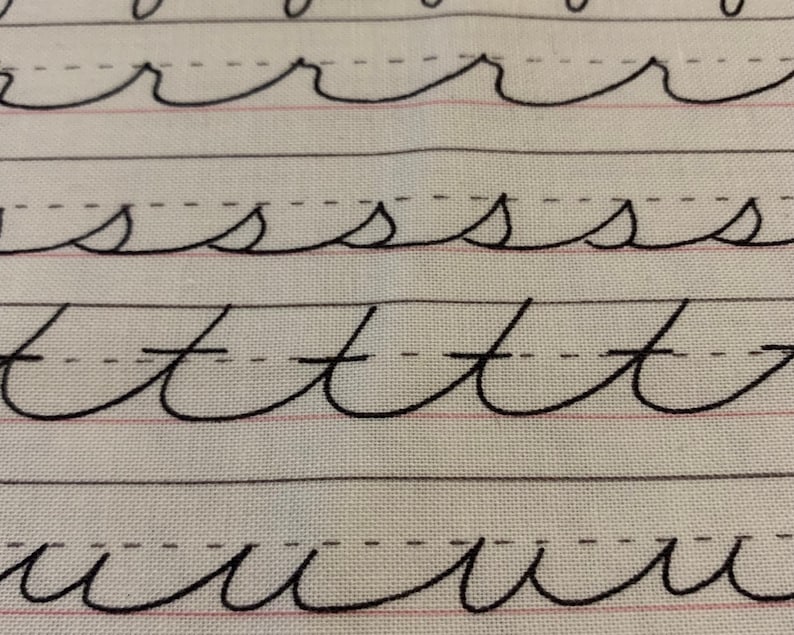 rrrrr
ssssss
ttttt
uuuu